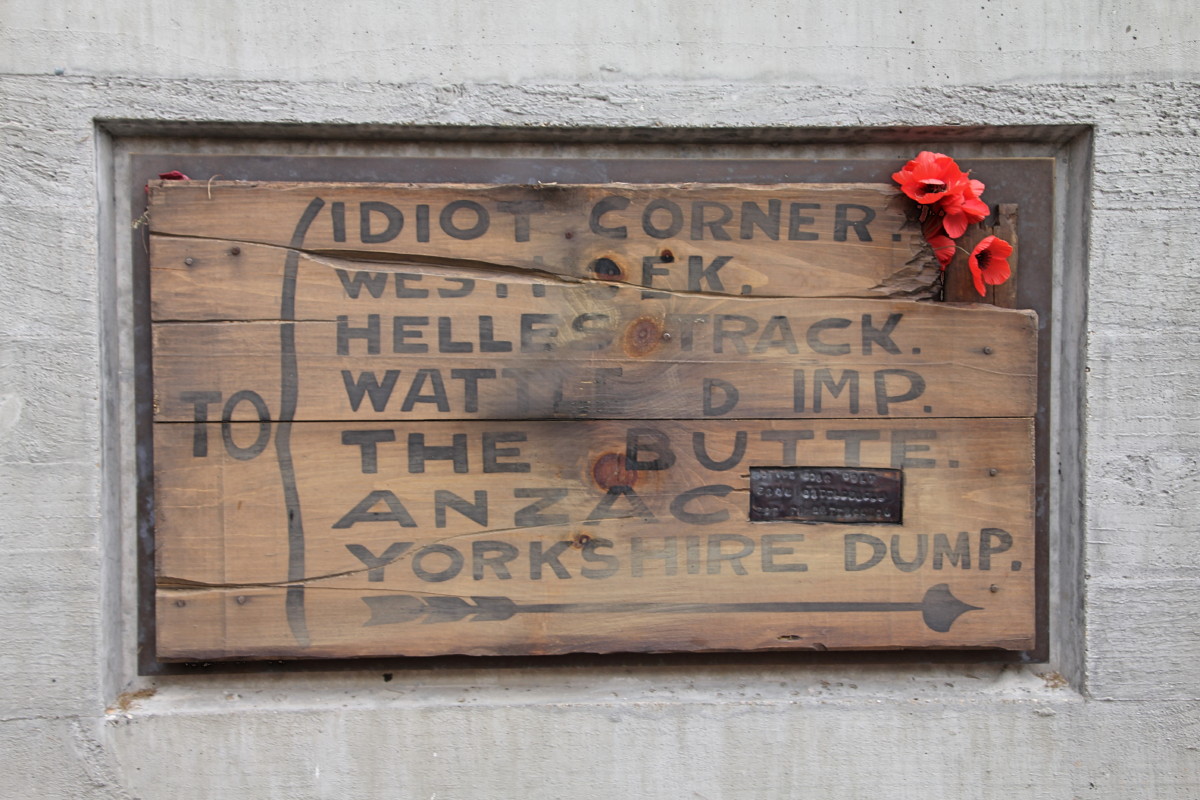 TO
IDIOT CORNER.
WESTHOEK.
HELLES TRACK.
WATTLE D IMP.
THE BUTTE.
ANZAC
YORKSHIRE DUMP.